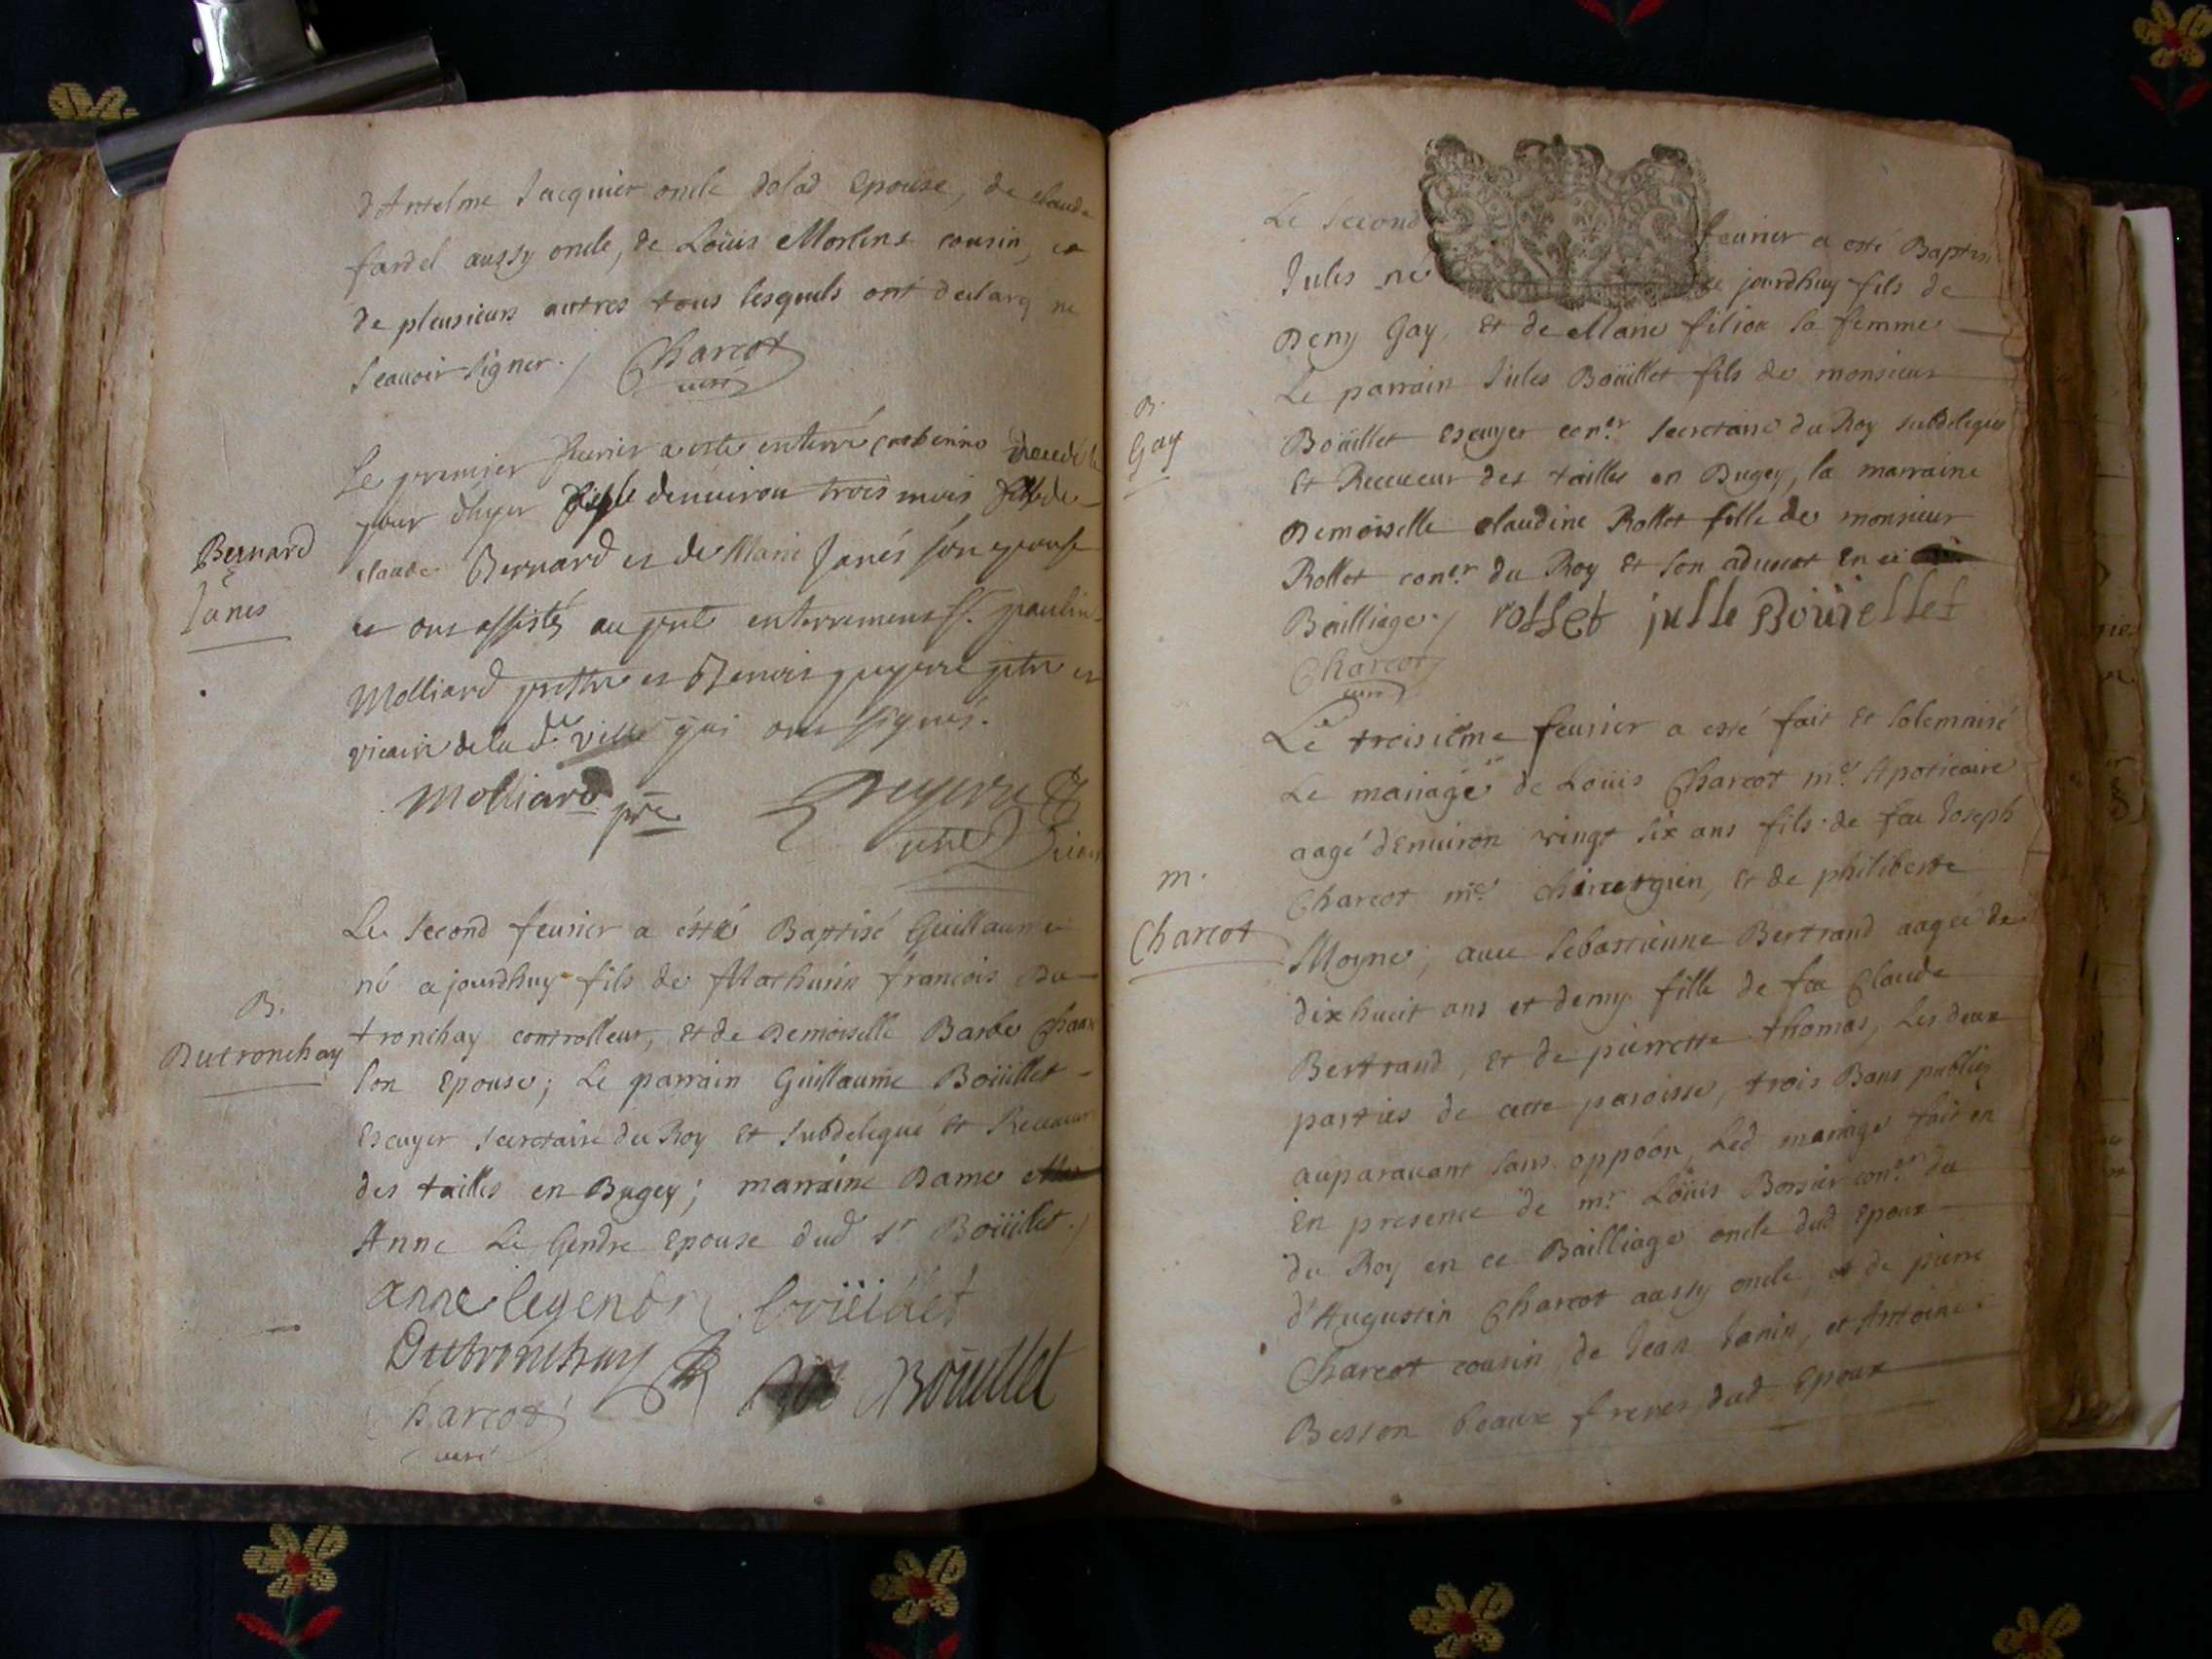 d'Antelme Jacquier oncle delad Epouse, de claude
fardel aussy oncle, de Loüis Morlins cousin, et
de plusieurs autres tous lesquels ont declaré ne
scauoir signer. / Charcot
curé
Le premier feurier a este enterré decedé le
jour dhyer denuiron trois mois fille de
claude Bernard et de Marie Janés son epouse
et ont assistés au pnt enterrement ss. paulin
Molliard prttre et Benoit pugerre ptre et
vicaire de la de ville qui ont signés.
Molliard pre
Bernard
&
Janés
Le second feurier a ésté Baptisé Guillaume
né ajourdhuy fils de Mathurin francois Du
tronchay controlleur, et de Demoiselle Barbe
son Epouse; Le parrain Guillaume Boüillet
Escuyer secretaire du Roy et subdelegué et Receueur
des tailles en Bugey; marraine Dame
Anne Le Gendre Epouse dud sr Boüillet. /
B.
Dutronchay
anne legendre boüillet
Dutronchay Boüillet
Charcot
curé
Le second feurier a esté Baptisé
Jules né jourdhuy fils de
Deny Gay, et de Marie filion sa femme
Le parrain Jules Boüillet fils de monsieur
Boüillet Escuyer coner secretaire du Roy subdelegué
et Receueur des tailles en Bugey, la marraine
Demoiselle claudine Rollet fille de monsieur
Rollet coner du Roy et son aduocat en ce
Bailliage. / rollet julle Boüiellet
Charcot
curé
B.
Gay
Le troisiéme feurier a esté fait et solemnisé
Le mariage de Loüis Charcot me Apoticaire
aagé d'Enuiron vingt six ans fils de feu Joseph
Charcot me chirurgien, et de philiberte
Moyne, auec sebastienne Bertrand aagée de
dix huit ans et demy fille de feu Claude
Bertrand, et de pierrette thomas, Les deux
parties de cette paroisse, trois Bans publiez
auparauant sans oppoon, Led mariage fait en
En presence de mr Loüis coner du
du Roy en ce Bailliage oncle dud Epoux
d'Augustin Charcot aussy oncle, et de pierre
Charcot cousin, de Jean Janin, et Antoine
Besson beaux freres dud Epoux
m.
Charcot